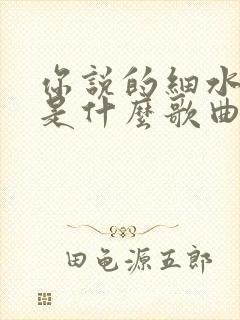 你說的細水
是什麼歌曲
田龟源五郎